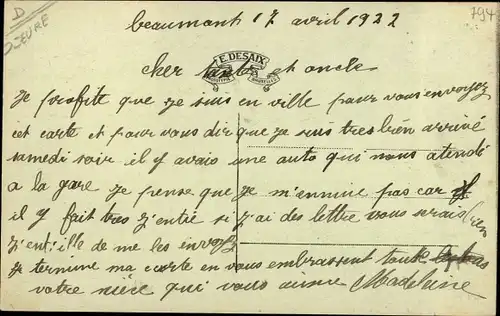 D
OEUVRE
794
beaumont 17 avril 1922
E. DESAIX
cher tante et oncle
Je profite que je suis en ville pour vous envoyez
cet carte et pour vous dir que je suis tres bien arrivé
samedi soir il y avais une auto qui nous atendé
a la gare je pense que je m'ennuie pas car
il y fait tres j'entie si j'ai des lettre vous serais bien
j'entille de me les envoyez
je termine ma carte en vous embrassent toute
votre niece qui vous aime Madeleine